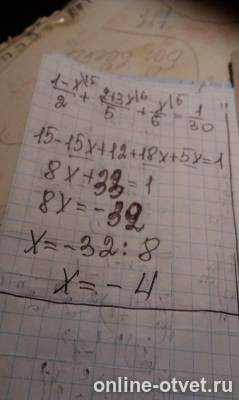 1-x\15/2 + 2+3x\6/5 + x\5/6 = 1/30
15-15x+12+18x+5x=1
8x+33=1
8x=-32
x=-32:8
x=-4
online-otvet.ru